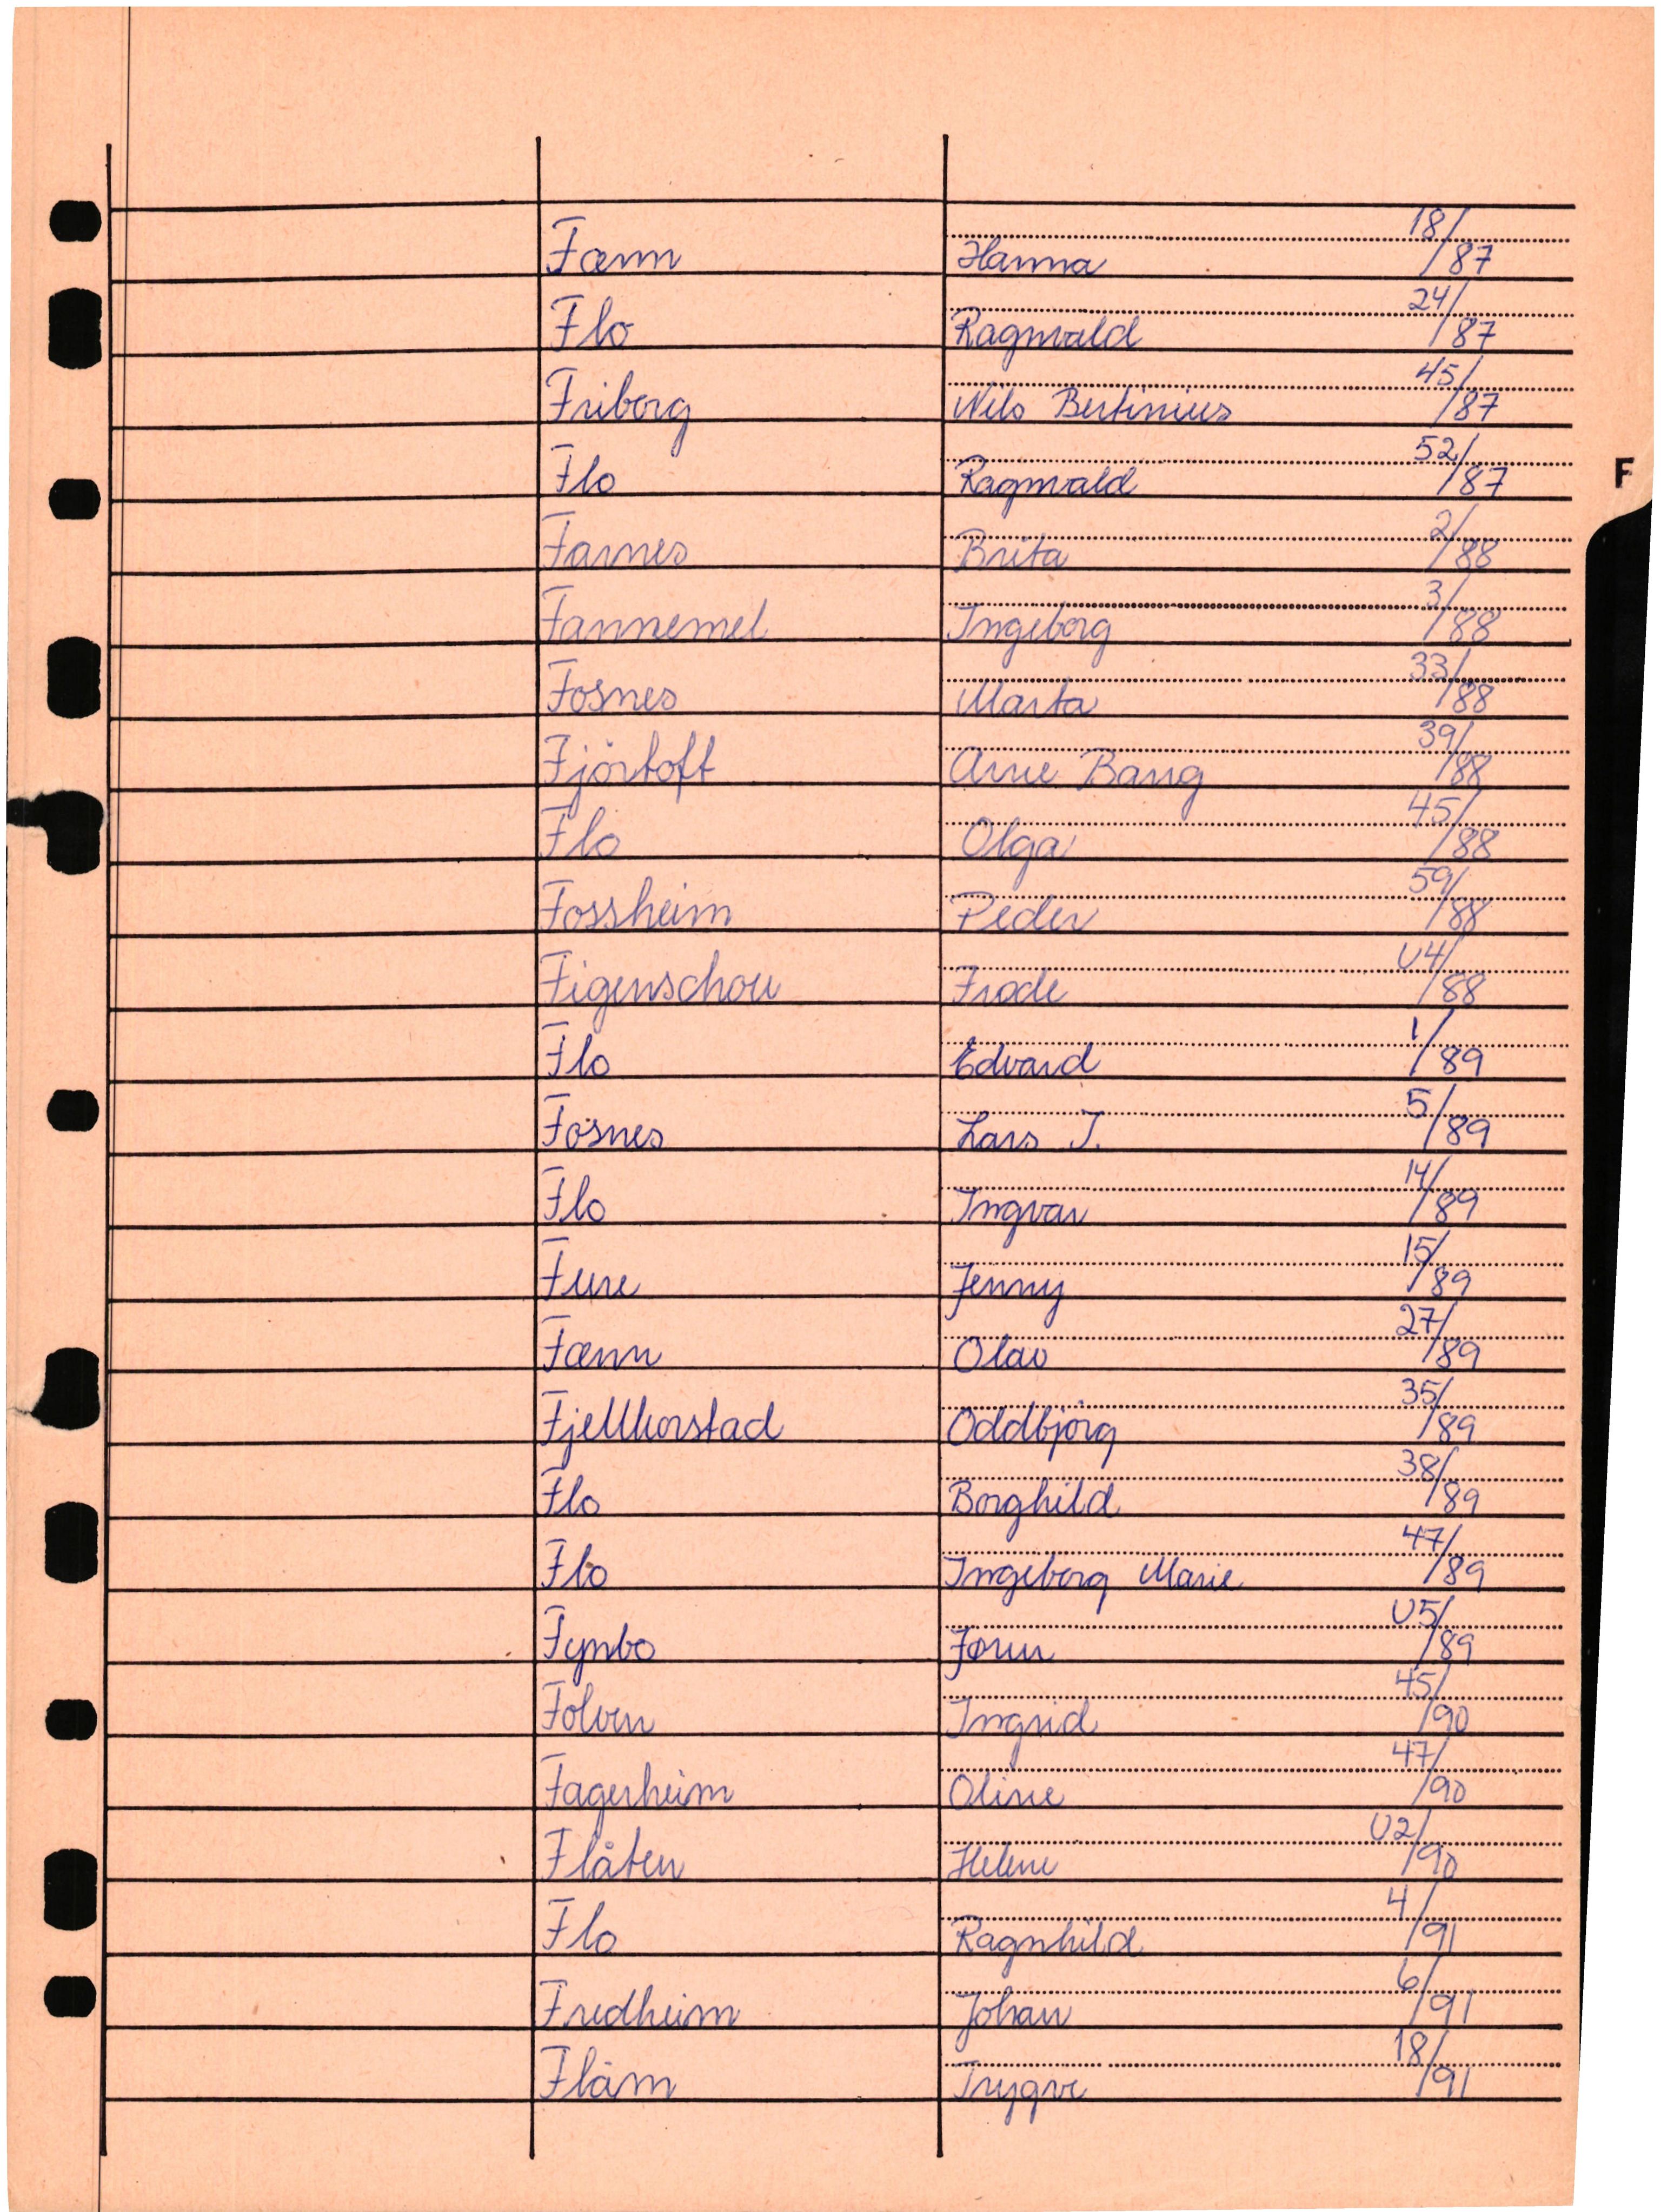 Fænn Hanna 18/87
Flo Ragnvald 24/87
Friborg Nils Bertinius 45/87
Flo Ragnvald 52/87
F
Farnes Brita 2/88
Fannemel Ingeborg 3/88
Fosnes Marta 33/88
Fjörtoft Arne Bang 39/88
Flo Olga 45/88
Fossheim Peder 59/88
Figenschou Frode U4/88
Flo Edvard 1/89
Fosnes Lars J. 5/89
Flo Ingvar 14/89
Fure Jenny 15/89
Fænn Olav 27/89
Fjellkorstad Oddbjörg 35/89
Flo Borghild 38/89
Flo Ingeborg Marie 47/89
Fynbo Jørn U5/89
Folven Ingrid 45/90
Fagerheim Oline 47/90
Flåten Helene U2/90
Flo Ragnhild 4/91
Fredheim Johan 6/91
Flåm Trygve 18/91